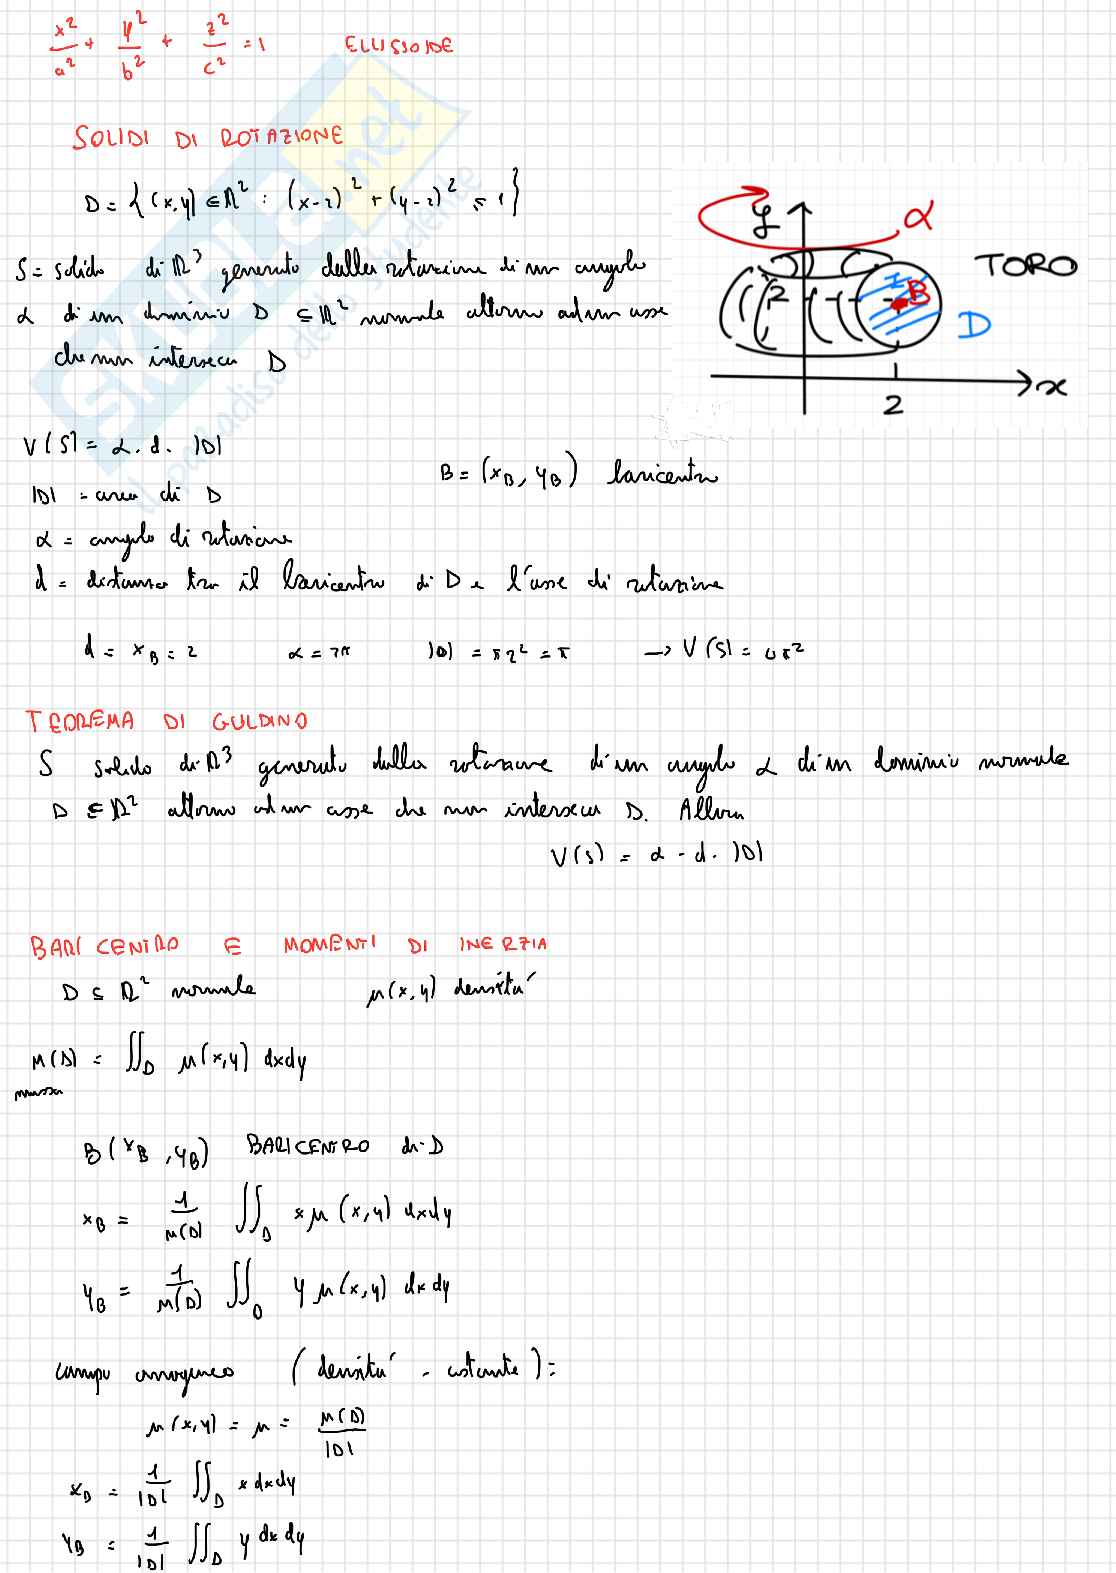 x²/a² + y²/b² + z²/c² = 1 ELLISSOIDE
SOLIDI DI ROTAZIONE
D = {(x,y) ∈ ℝ² : (x-2)² + (y-2)² ≤ 1}
S = solido di ℝ³ generato dalla rotazione di un angolo
α di un dominio D ⊆ ℝ² normale attorno ad un asse
che non interseca D
y α
TORO
2 B
D
x
2
V(S) = α . d . |D|
B = (x_B, y_B) baricentro
|D| = area di D
α = angolo di rotazione
d = distanza tra il baricentro di D e l'asse di rotazione
d = x_B = 2 α = 2π |D| = π r² = π → V(S) = 4π²
TEOREMA DI GULDINO
S solido di ℝ³ generato dalla rotazione di un angolo α di un dominio normale
D ⊆ ℝ² attorno ad un asse che non interseca D. Allora
V(S) = α · d · |D|
BARICENTRO E MOMENTI DI INERZIA
D ⊆ ℝ² normale μ(x,y) densità
M(D) = ∬_D μ(x,y) dxdy
massa
B(x_B, y_B) BARICENTRO di D
x_B = 1/M(D) ∬_D x μ(x,y) dxdy
y_B = 1/M(D) ∬_D y μ(x,y) dxdy
campo omogeneo (densità - costante):
μ(x,y) = μ = M(D)/|D|
x_B = 1/|D| ∬_D x dxdy
y_B = 1/|D| ∬_D y dxdy
SKUOLA.net
il paradiso dello studente